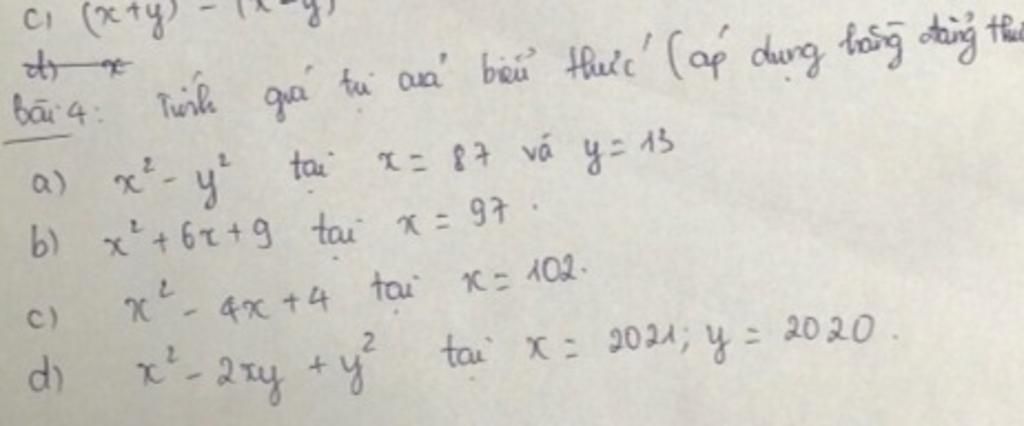 c) (x+y) - (x-y)
d) x
Bài 4: Tính giá trị của biểu thức (áp dụng hằng đẳng thức
a) x² - y² tại x = 87 và y = 13
b) x² + 6x + 9 tại x = 97.
c) x² - 4x + 4 tại x = 102.
d) x² - 2xy + y² tại x = 2021; y = 2020.